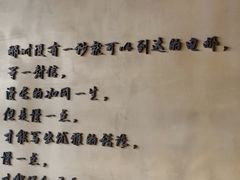 那时没有一秒就可以到达的电邮，
等一封信，
漫长的如同一生，
但是慢一点，
才能写出优雅的诗诊，
慢一点，